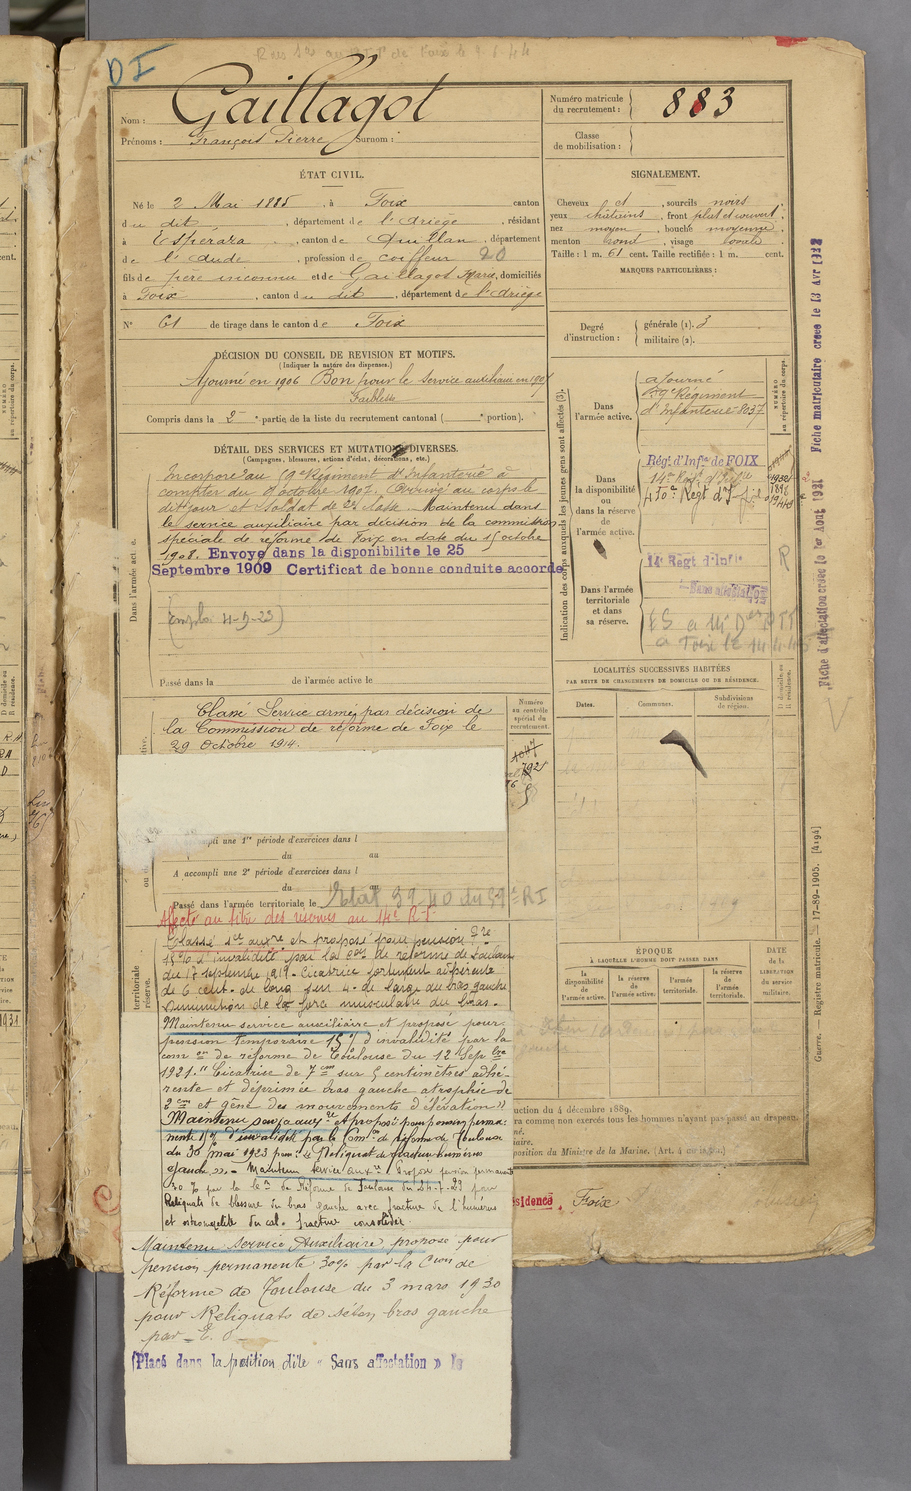 DI
Nom : Gaillagot
Prénoms : François Pierre Surnom :
Numéro matricule du recrutement : 883
Classe de mobilisation :
ÉTAT CIVIL.
Né le 2 Mai 1885, à Foix canton
du dit, département de l'Ariège, résidant
à Espéraza, canton de Quillan, département
de l'Aude, profession de coiffeur 20
fils de père inconnu et de Gaillagot Marie, domiciliés
à Foix, canton du dit, département de l'Ariège
N° 61 de tirage dans le canton de Foix
SIGNALEMENT.
Cheveux et, sourcils noirs
yeux châtains, front plat et couvert,
nez moyen, bouche moyenne,
menton rond, visage ovale
Taille : 1 m. 61 cent. Taille rectifiée : 1 m. cent.
MARQUES PARTICULIÈRES :
Degré d'instruction : générale (1). 3
militaire (2).
DÉCISION DU CONSEIL DE REVISION ET MOTIFS.
(Indiquer la nature des dispenses.)
Ajourné en 1906 Bon pour le service auxiliaire en 1907
Faiblesse
Compris dans la 2e partie de la liste du recrutement cantonal ( e portion).
DÉTAIL DES SERVICES ET MUTATIONS DIVERSES.
(Campagnes, blessures, actions d'éclat, décorations, etc.)
Dans l'armée act e.
Incorporé au 59e Régiment d'Infanterie à
compter du 8 octobre 1907, Arrivé au corps le
dit jour et soldat de 2e classe. Maintenu dans
le service auxiliaire par décision de la commission
spéciale de réforme de Foix en date du 15 octobre
1908. Envoyé dans la disponibilite le 25
Septembre 1909 Certificat de bonne conduite accordé
(emploi 4-9-23)
Passé dans la de l'armée active le
Classé Service armé par décision de
la Commission de réforme de Foix le
29 Octobre 1914.
Numéro au contrôle spécial du recrutement.
Indication des corps auxquels les jeunes gens sont affectés (3).
Dans l'armée active.
ajourné
59e Régiment
d'Infanterie 8037
NUMÉRO au répertoire du corps.
Dans la disponibilité ou dans la réserve de l'armée active.
Rég. d'Infie de FOIX
14e Regt d'Infie
Dans l'armée territoriale et dans sa réserve.
14e Regt d'Infie
R
LOCALITÉS SUCCESSIVES HABITÉES
PAR SUITE DE CHANGEMENTS DE DOMICILE OU DE RÉSIDENCE.
Dates. Communes. Subdivisions de région.
D domicile ou R résidence.
Fiche d'affectation creee le 1er Aout 1931 Fiche matriculaire creee le 13 Avr 1938
Guerre. — Registre matricule. — 17-89-1905. [4194]
pli une 1re période d'exercices dans l
du au
A accompli une 2e période d'exercices dans l
du au
Passé dans l'armée territoriale le
Affecté au titre des réserves au 14e R I
territoriale réserve.
Classé sce auxre et proposé pour pension
15% d'invalidité par la Con de réforme de Toulouse
du 17 septembre 1919. Cicatrice
de 6 cent. de long sur 4 de large au bras gauche
Diminution de la force musculaire du bras.
Maintenu service auxiliaire et proposé pour
pension temporaire 15% d'invalidité par la
com on de réforme de Toulouse du 12 Sep bre
1921. "Cicatrice de 7 cm sur 5 centimètres adhé-
rente et déprimée bras gauche atrophie de
2 cm et gêne des mouvements d'élévation"
Maintenu service auxre et proposé pour pension perma-
nente 15% d'invalidité par la Comon de réforme de Toulouse
du 30 mai 1923 pour : "Reliquat de fracture humérus
gauche". Maintenu service auxre Proposé pension permanente
30% par la Con de Réforme de Toulouse du 24-7-29 pour
Reliquats de blessure du bras gauche avec fracture de l'humérus
et du cal. fracture consolidée.
Maintenu Service Auxiliaire proposé pour
pension permanente 30% par la Cion de
Réforme de Toulouse du 3 mars 1930
pour Reliquats de séton bras gauche
par E. O
Placé dans la position dite « Sans affectation » le
ÉPOQUE
À LAQUELLE L'HOMME DOIT PASSER DANS
la disponibilité de l'armée active.
la réserve de l'armée active.
l'armée territoriale.
la réserve de l'armée territoriale.
DATE de la LIBÉRATION du service militaire.
uction du 4 décembre 1889.
ra comme non exercés tous les hommes n'ayant pas passé au drapeau.
mé.
iaire.
position du Ministre de la Marine. (Art. 4
sidence Foix